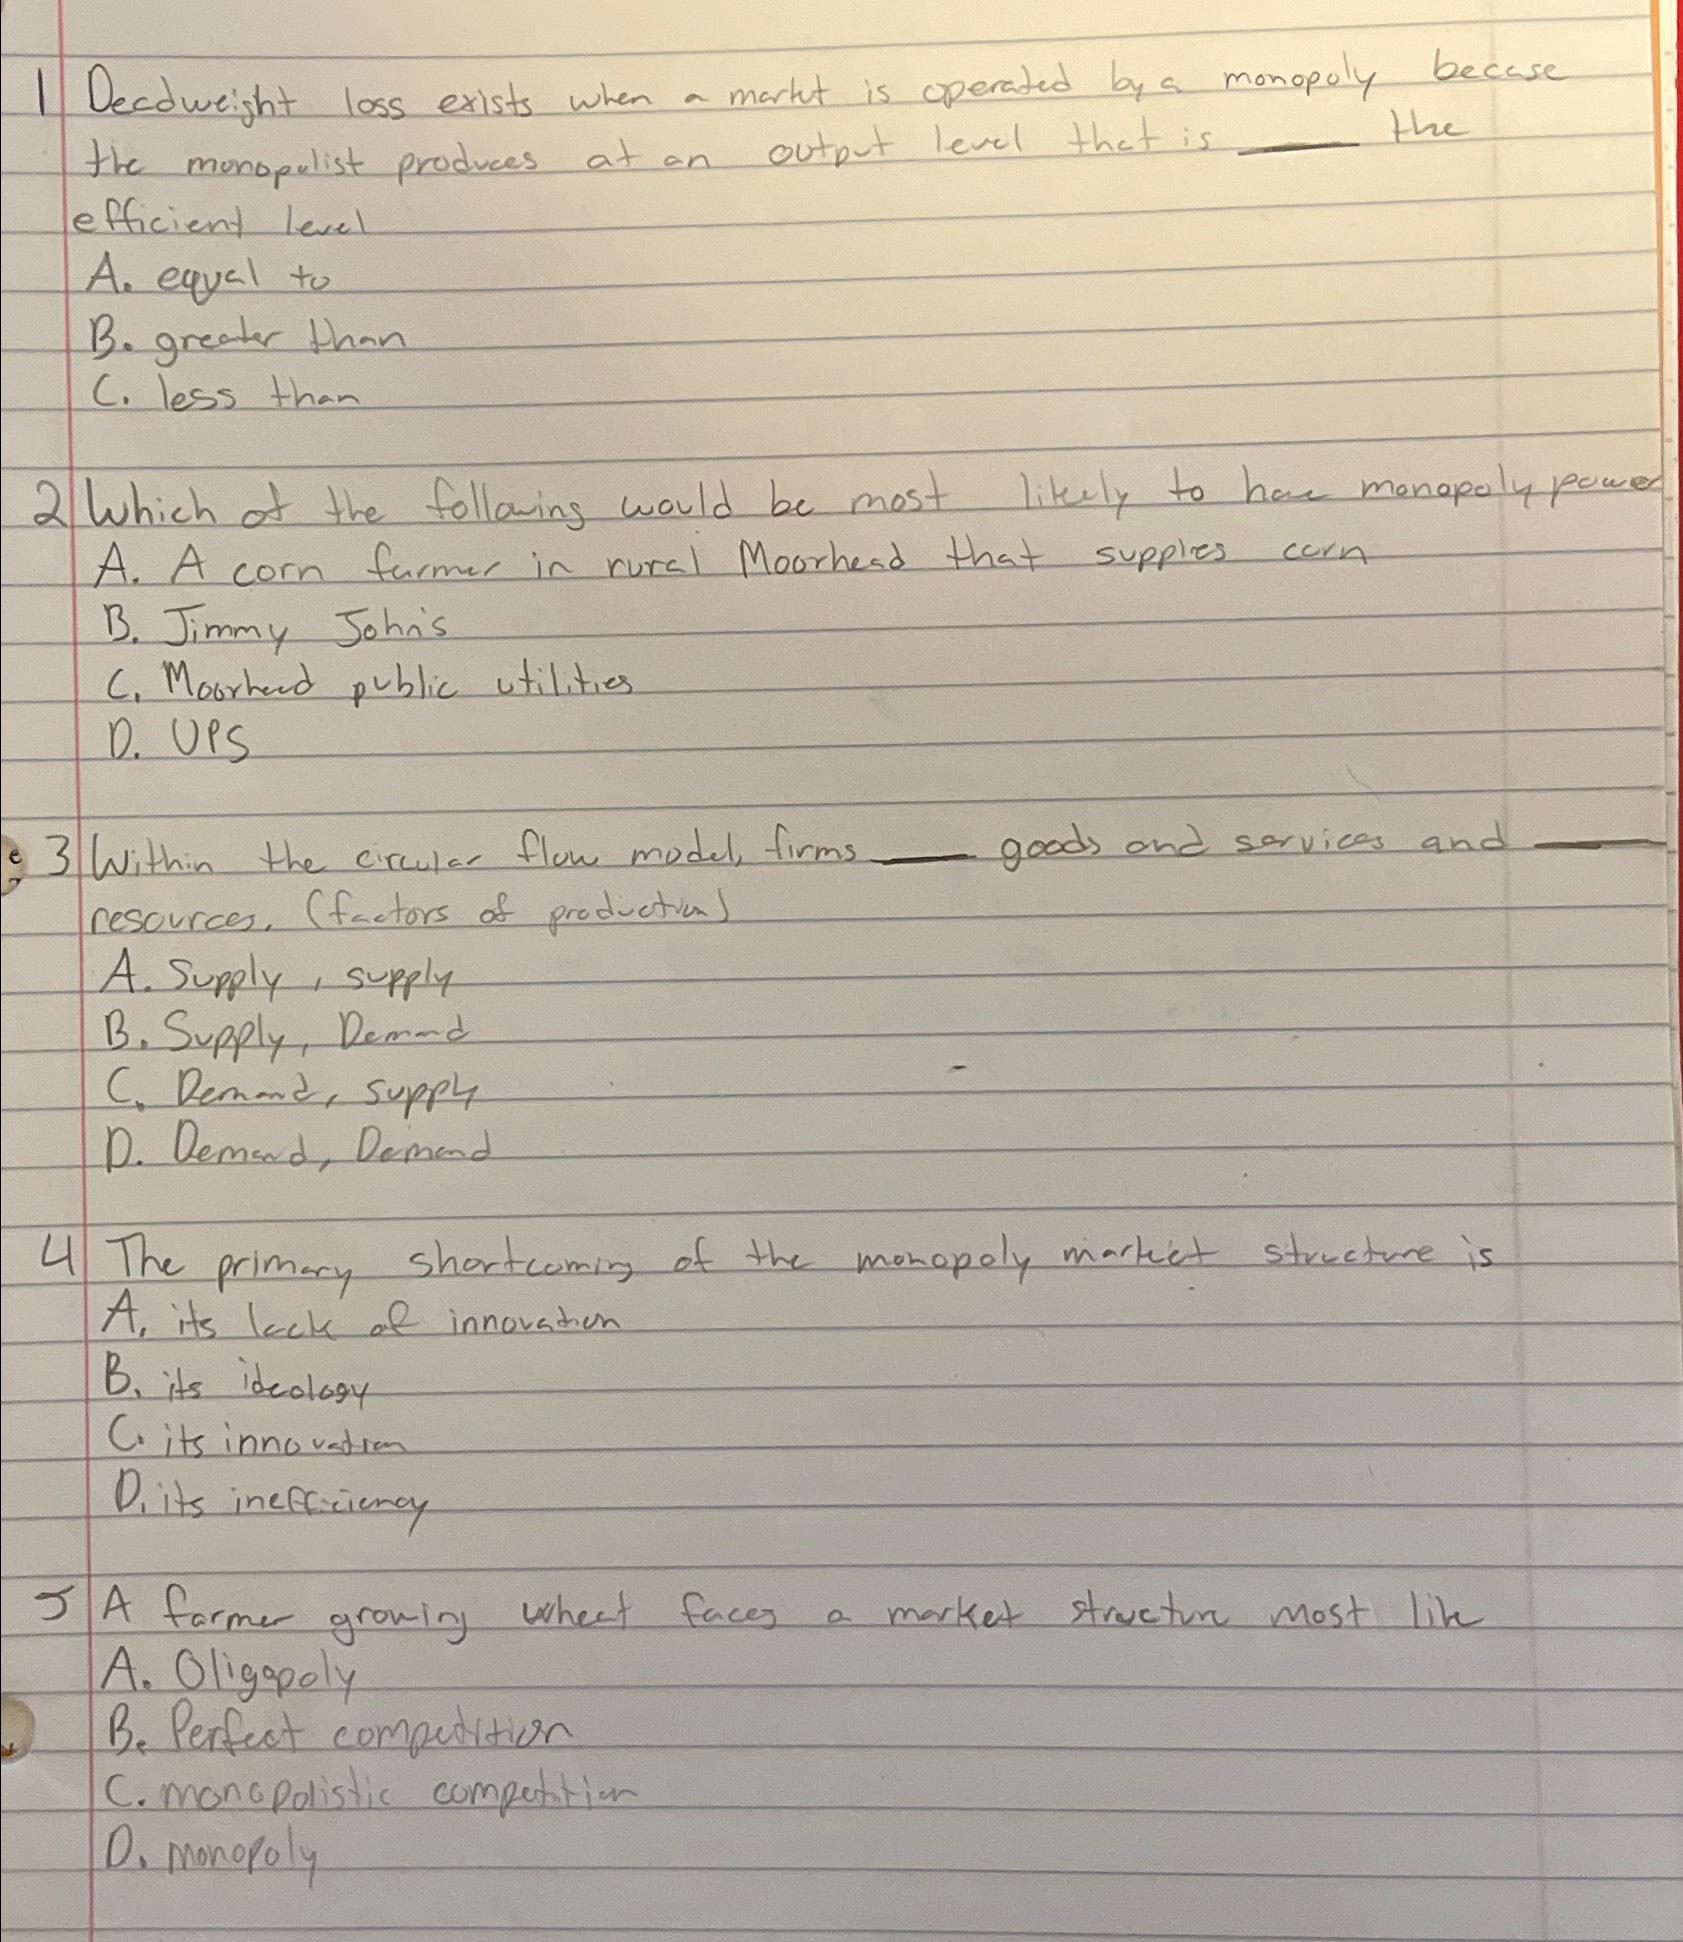 1 Deadweight loss exists when a market is operated by a monopoly becase
the monopolist produces at an output level that is ____ the
efficient level
A. equal to
B. greater than
C. less than
2 Which of the following would be most likely to have monopoly power
A. A corn farmer in rural Moorhead that supplies corn
B. Jimmy John's
C. Moorhead public utilities
D. UPS
3 Within the circular flow model, firms ____ goods and services and ____
resources. (factors of production)
A. Supply, supply
B. Supply, Demand
C. Demand, supply
D. Demand, Demand
4 The primary shortcoming of the monopoly market structure is
A. its lack of innovation
B. its ideology
C. its innovation
D. its inefficiency
5 A farmer growing wheat faces a market structure most like
A. Oligopoly
B. Perfect competition
C. monopolistic competition
D. monopoly